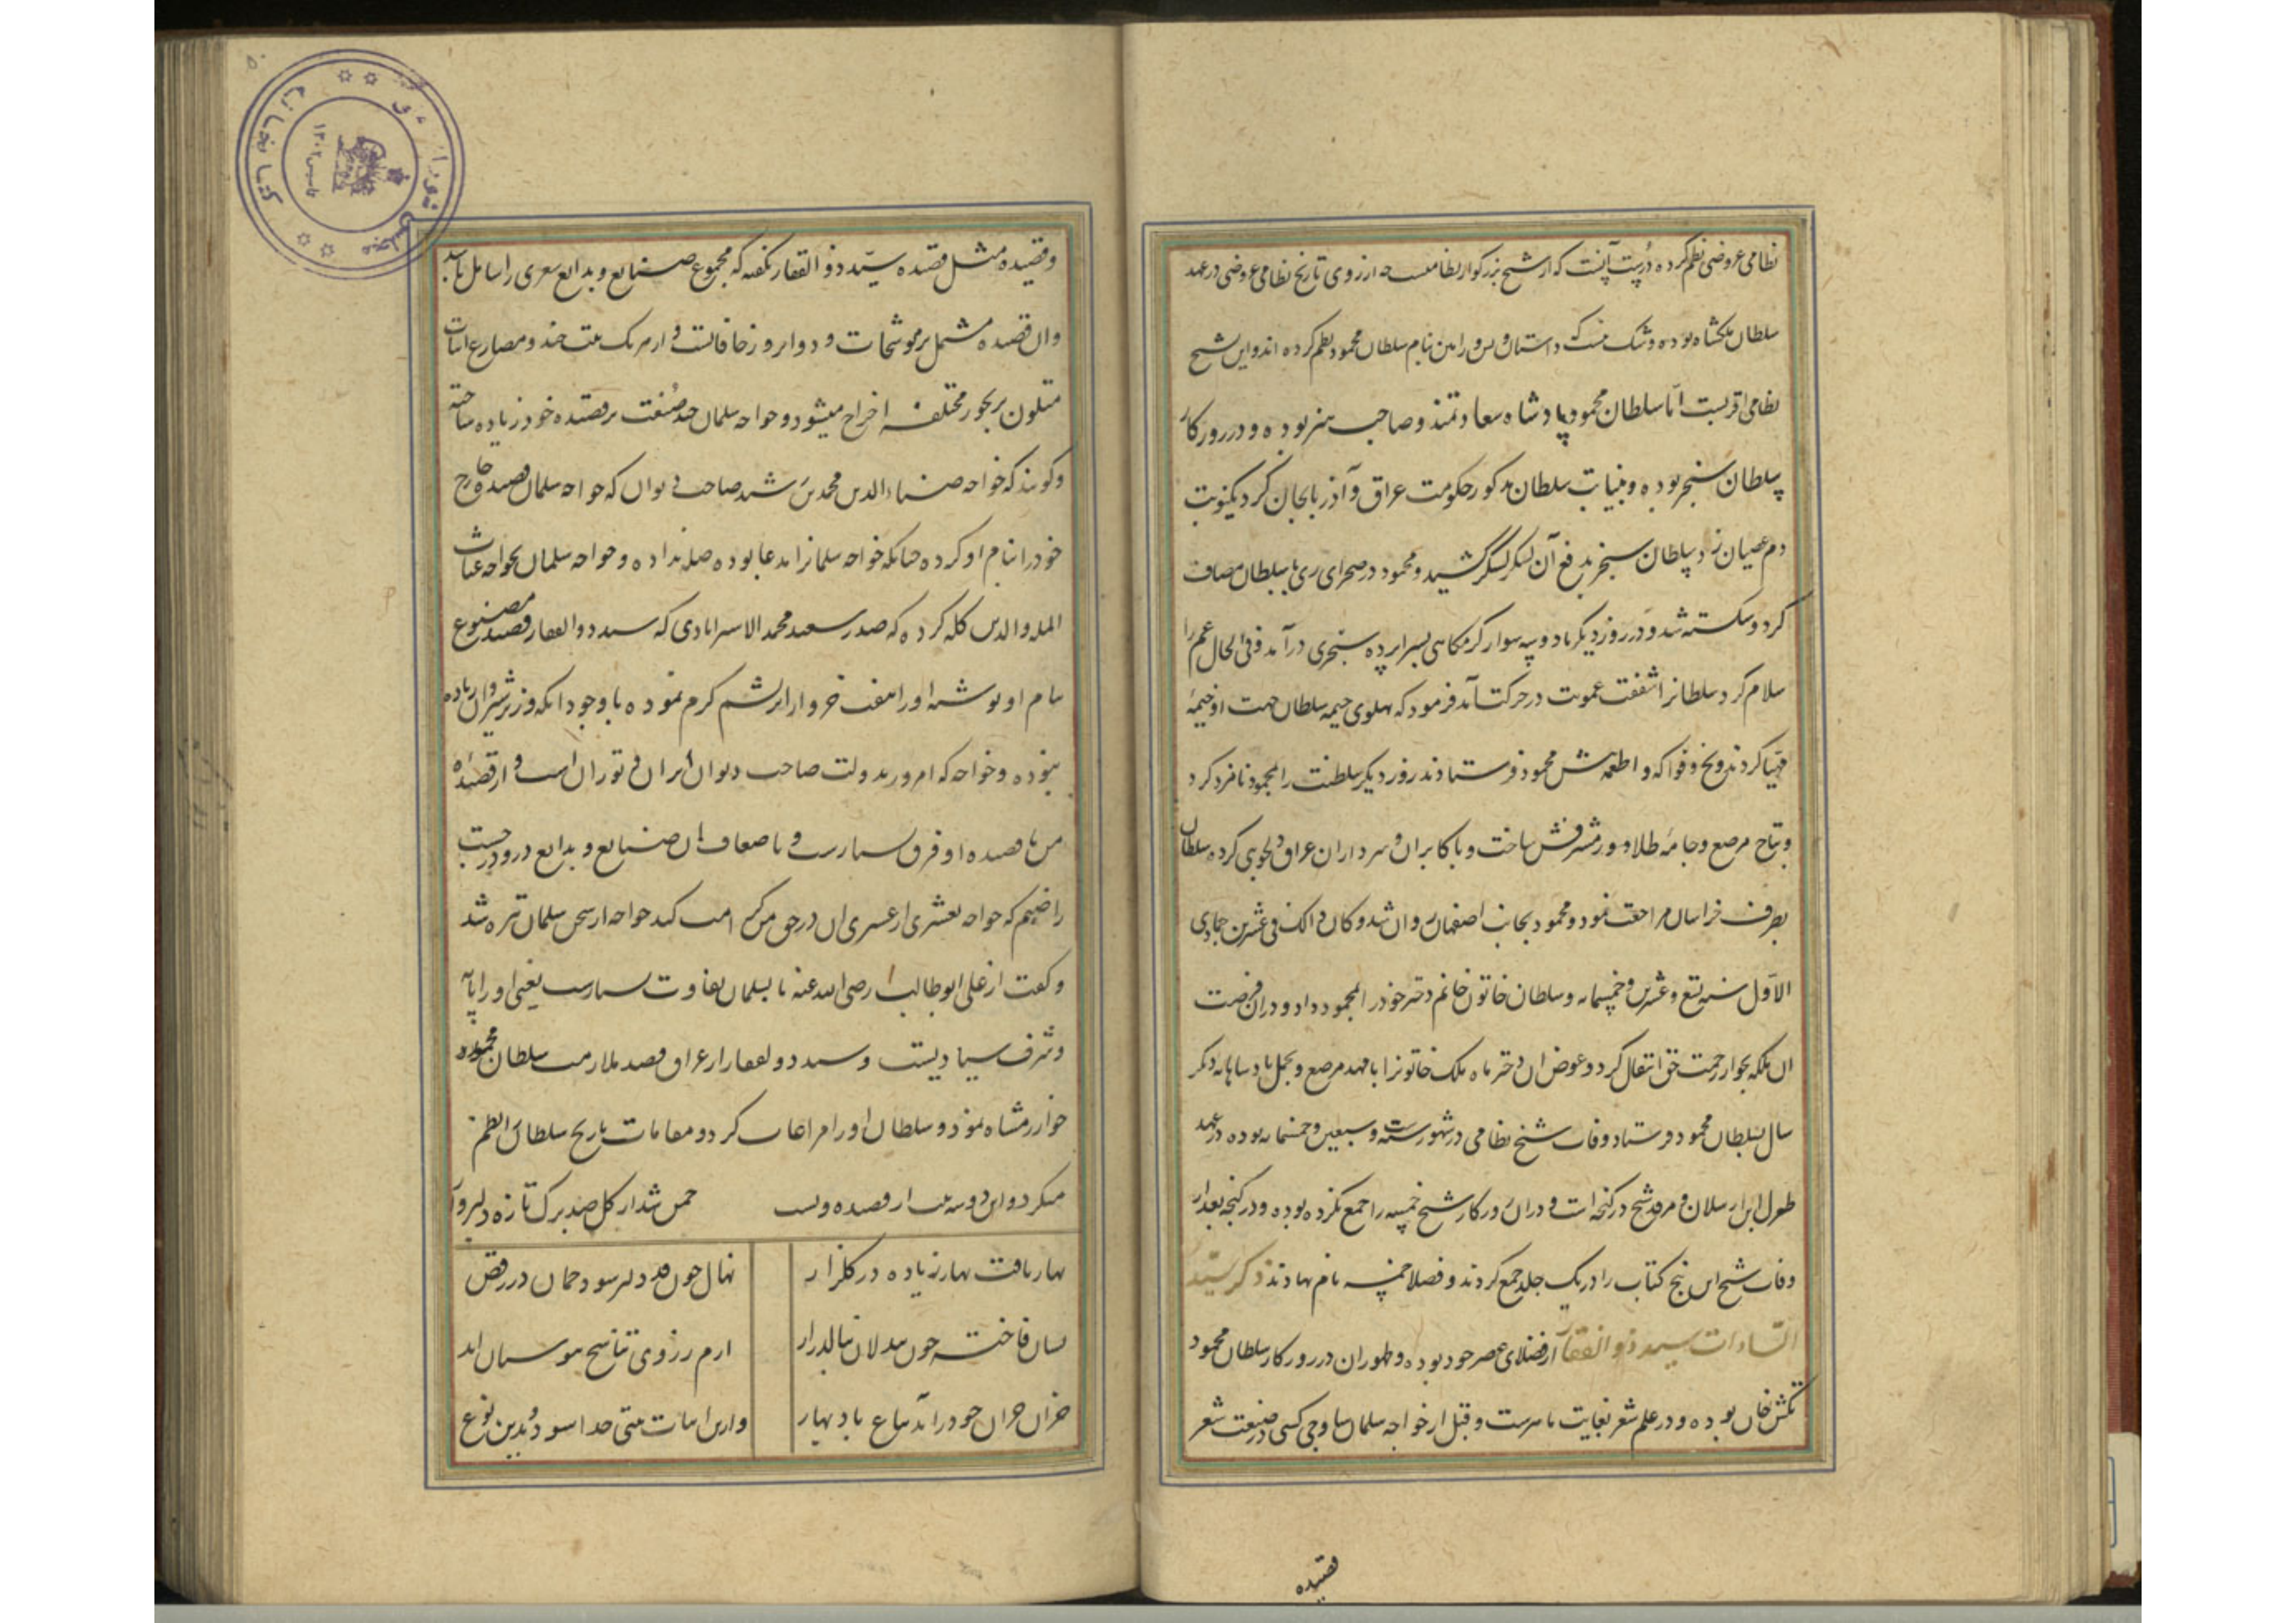 نظامی عروضی نظم کرده درست آنست که از شیخ بزرگوار نظامیست چه از روی تاریخ نظامی عروضی در عهد
سلطان ملکشاه بوده و شک نیست که داستان ویس و رامین بنام سلطان محمود نظم کرده اند و این شیخ
نظامی اقربست اما سلطان محمود پادشاه سعادتمند و صاحب هنر بوده و در روزکار
سلطان سنجر بوده و بنیابت سلطان مذکور حکومت عراق و آذربایجان کرد یکنوبت
دم عصیان زد سلطان سنجر بدفع آن لشکر کشید و محمود در صحرای ری با سلطان مصاف
کرد و شکسته شد و در روز دیگر با دو سه سوار کرمکاهی بسراپرده سنجری درآمد و فی الحال عم را
سلام کرد سلطانرا شفقت عمویت در حرکت آمد فرمود که پهلوی خیمه سلطان جهت او خیمهٔ
مهیا کردند و یخ و فواکه و اطعمه پیش محمود فرستادند روز دیگر سلطنت را بمحمود نامزد کرد
و بتاج مرصع و جامهٔ طلادوز مشرفش ساخت و با کابران و سرداران عراق دلجویی کرده سلطان
بطرف خراسان مراجعت نمود و محمود بجانب اصفهان روان شد و کان ذالک فی عشرین جمادی
الاول سنه تسع و عشرین و خمسمایه و سلطان خاتون خانم دختر خود را بمحمود داد و در آن فرصت
ان ملکه بجوار رحمت حق انتقال کرد و عوض ان دختر ماه ملک خاتونرا با مهد مرصع و تجمل پادشاهانه دیگر
سال بسلطان محمود فرستاد وفات شیخ نظامی در شهور سنه ست و سبعین و خمسمایه بوده در عهد
طغرل ابن ارسلان و مرقد شیخ در کنجه است و در ان روزکار شیخ خمسه را جمع نکرده بوده و در کنجه بعد از
وفات شیخ این پنج کتاب را در یک جلد جمع کردند و فضلا خمسه نام نهادند ذکر سید
السادات سید ذوالفقار از فضلای عصر خود بوده و ظهور ان در روزکار سلطان محمود
تکش خان بوده و در علم شعر بغایت ماهرست و قبل از خواجه سلمان ساوجی کسی در صنعت شعر
قصیده
و قصیده مثل قصیده سید ذوالفقار نکفته که مجموع صنایع و بدایع شعری را شامل باشد
وان قصیده مشتمل بر موشحات و دوایر و زحافاتست و از هر یک بیت چند و مصارع ابیات
متلون بر بحور مختلفه اخراج میشود و خواجه سلمان چند صنعت بر قصیده خود زیاده ساخته
و کویند که خواجه ضیاءالدین محمد بن رشید صاحب دیوان که خواجه سلمان قصیده خارج
خود را بنام او کرده چنانکه خواجه سلمانرا مدعا بوده صله نداده و خواجه سلمان بخواجه غیاث
المله والدین کله کرده که صدر سعید محمد الاسترابادی که سید ذوالفقار قصیده مصنوع
بنام او نوشته او را هفت خروار ابریشم کرم نموده با وجود انکه وزیر شیروان زیاده
نبوده و خواجه که امروز بدولت صاحب دیوان ایران و توران است و از قصیده
من تا قصیده او فرق بسیارست و باضعاف ان صنایع و بدایع درو درجست
راضیم که خواجه بعشری از عشری ان در حق من کرامت کند خواجه از سخن سلمان تیره شد
و کفت از علی ابوطالب رضی الله عنه تا بسلمان تفاوت بسیارست یعنی او را پایهٔ
و شرف سیادتست و سید ذولفقار از عراق قصد ملازمت سلطان محمود
خوارزمشاه نمود و سلطان او را مراعات کرد و مقامات تاریخ سلطان را نظم
میکرد و این دو سه بیت از قصیده ویست چمن شد از کل صد برک تازه دلبروار
بهار یافت بهار زیاده در کلزار نهال چون قد دلبر شود چمان در رقص
بسان فاختـه چون بیدلان بنالد زار ارم ز روی تناسخ ببوستان اید
خزان خزان چو دراید بباغ باد بهار و ازین ابیات بیتی جدا شود و بدین نوع
کتابخانه
مجلس شورای
تاسیس ۱۳۰۲